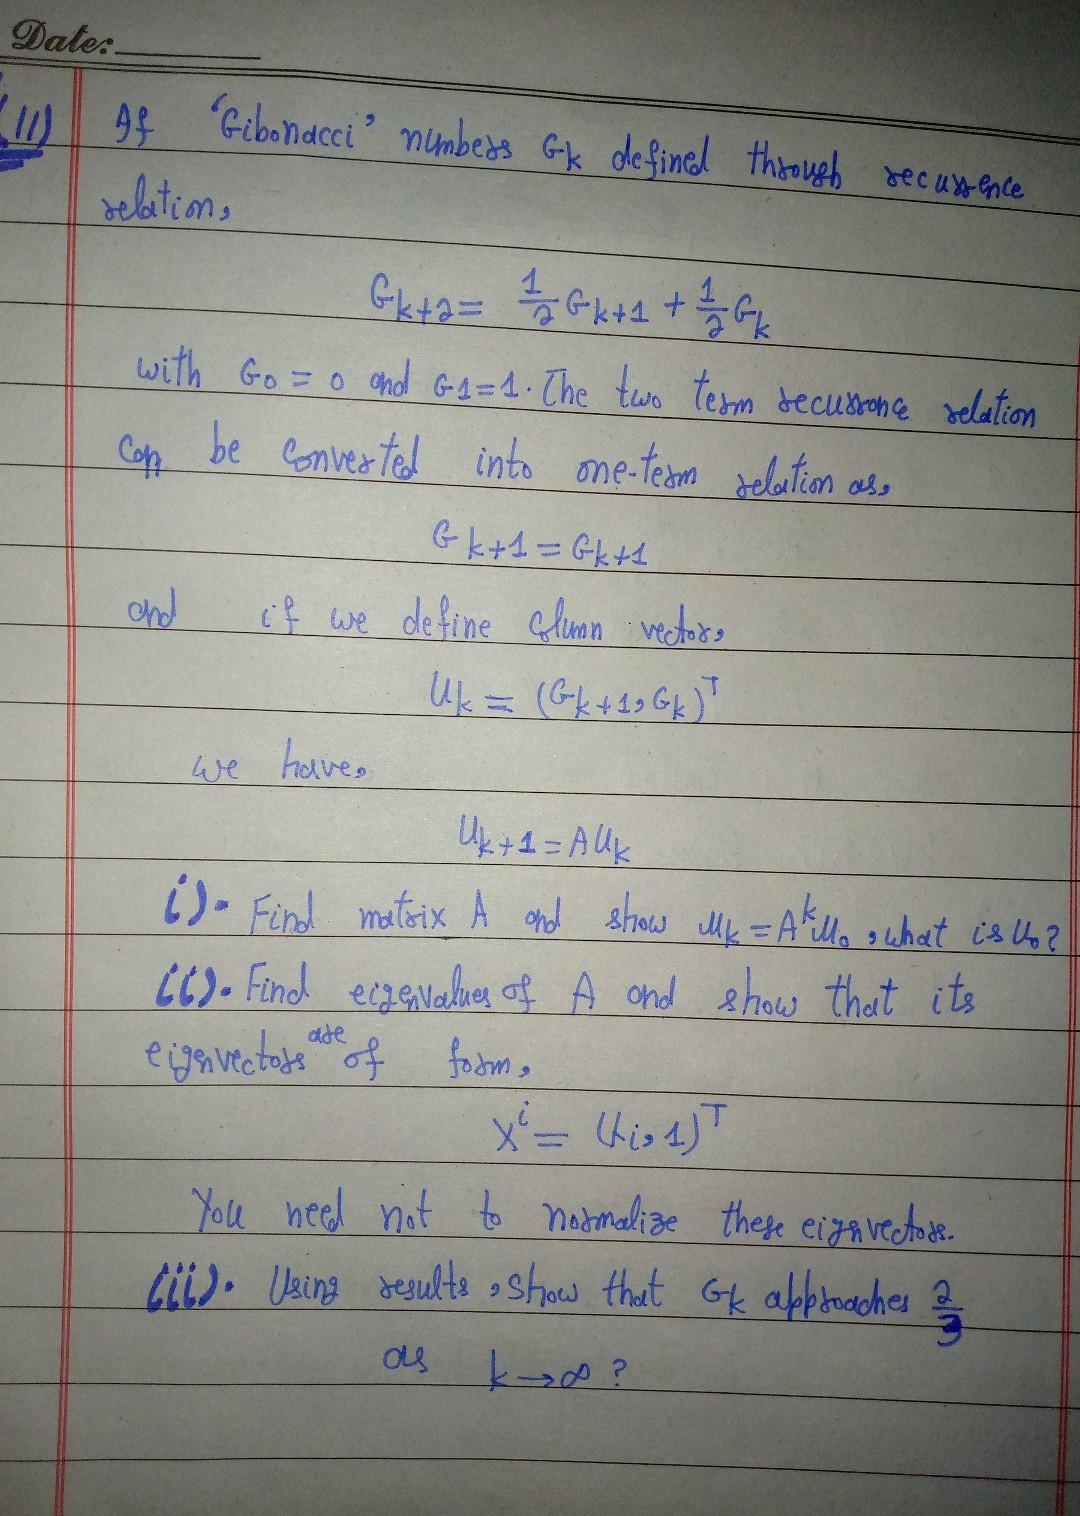 Date:
(11) If 'Gibonacci' numbers Gk defined through recurrence
relation,
G_{k+2} = \frac{1}{2} G_{k+1} + \frac{1}{2} G_k
with G_0 = 0 and G_1 = 1. The two term recurrance relation
can be converted into one-term relation as,
G_{k+1} = G_{k+1}
and if we define column vector,
U_k = (G_{k+1}, G_k)^T
we have,
U_{k+1} = A U_k
i). Find matrix A and show u_k = A^k u_0, what is U_0?
(ii). Find eigenvalues of A and show that its
eigenvectors are of form,
X^i = (λ_i, 1)^T
You need not to normalize these eigenvectors.
(iii). Using results, show that G_k approaches \frac{2}{3}
as k → ∞ ?